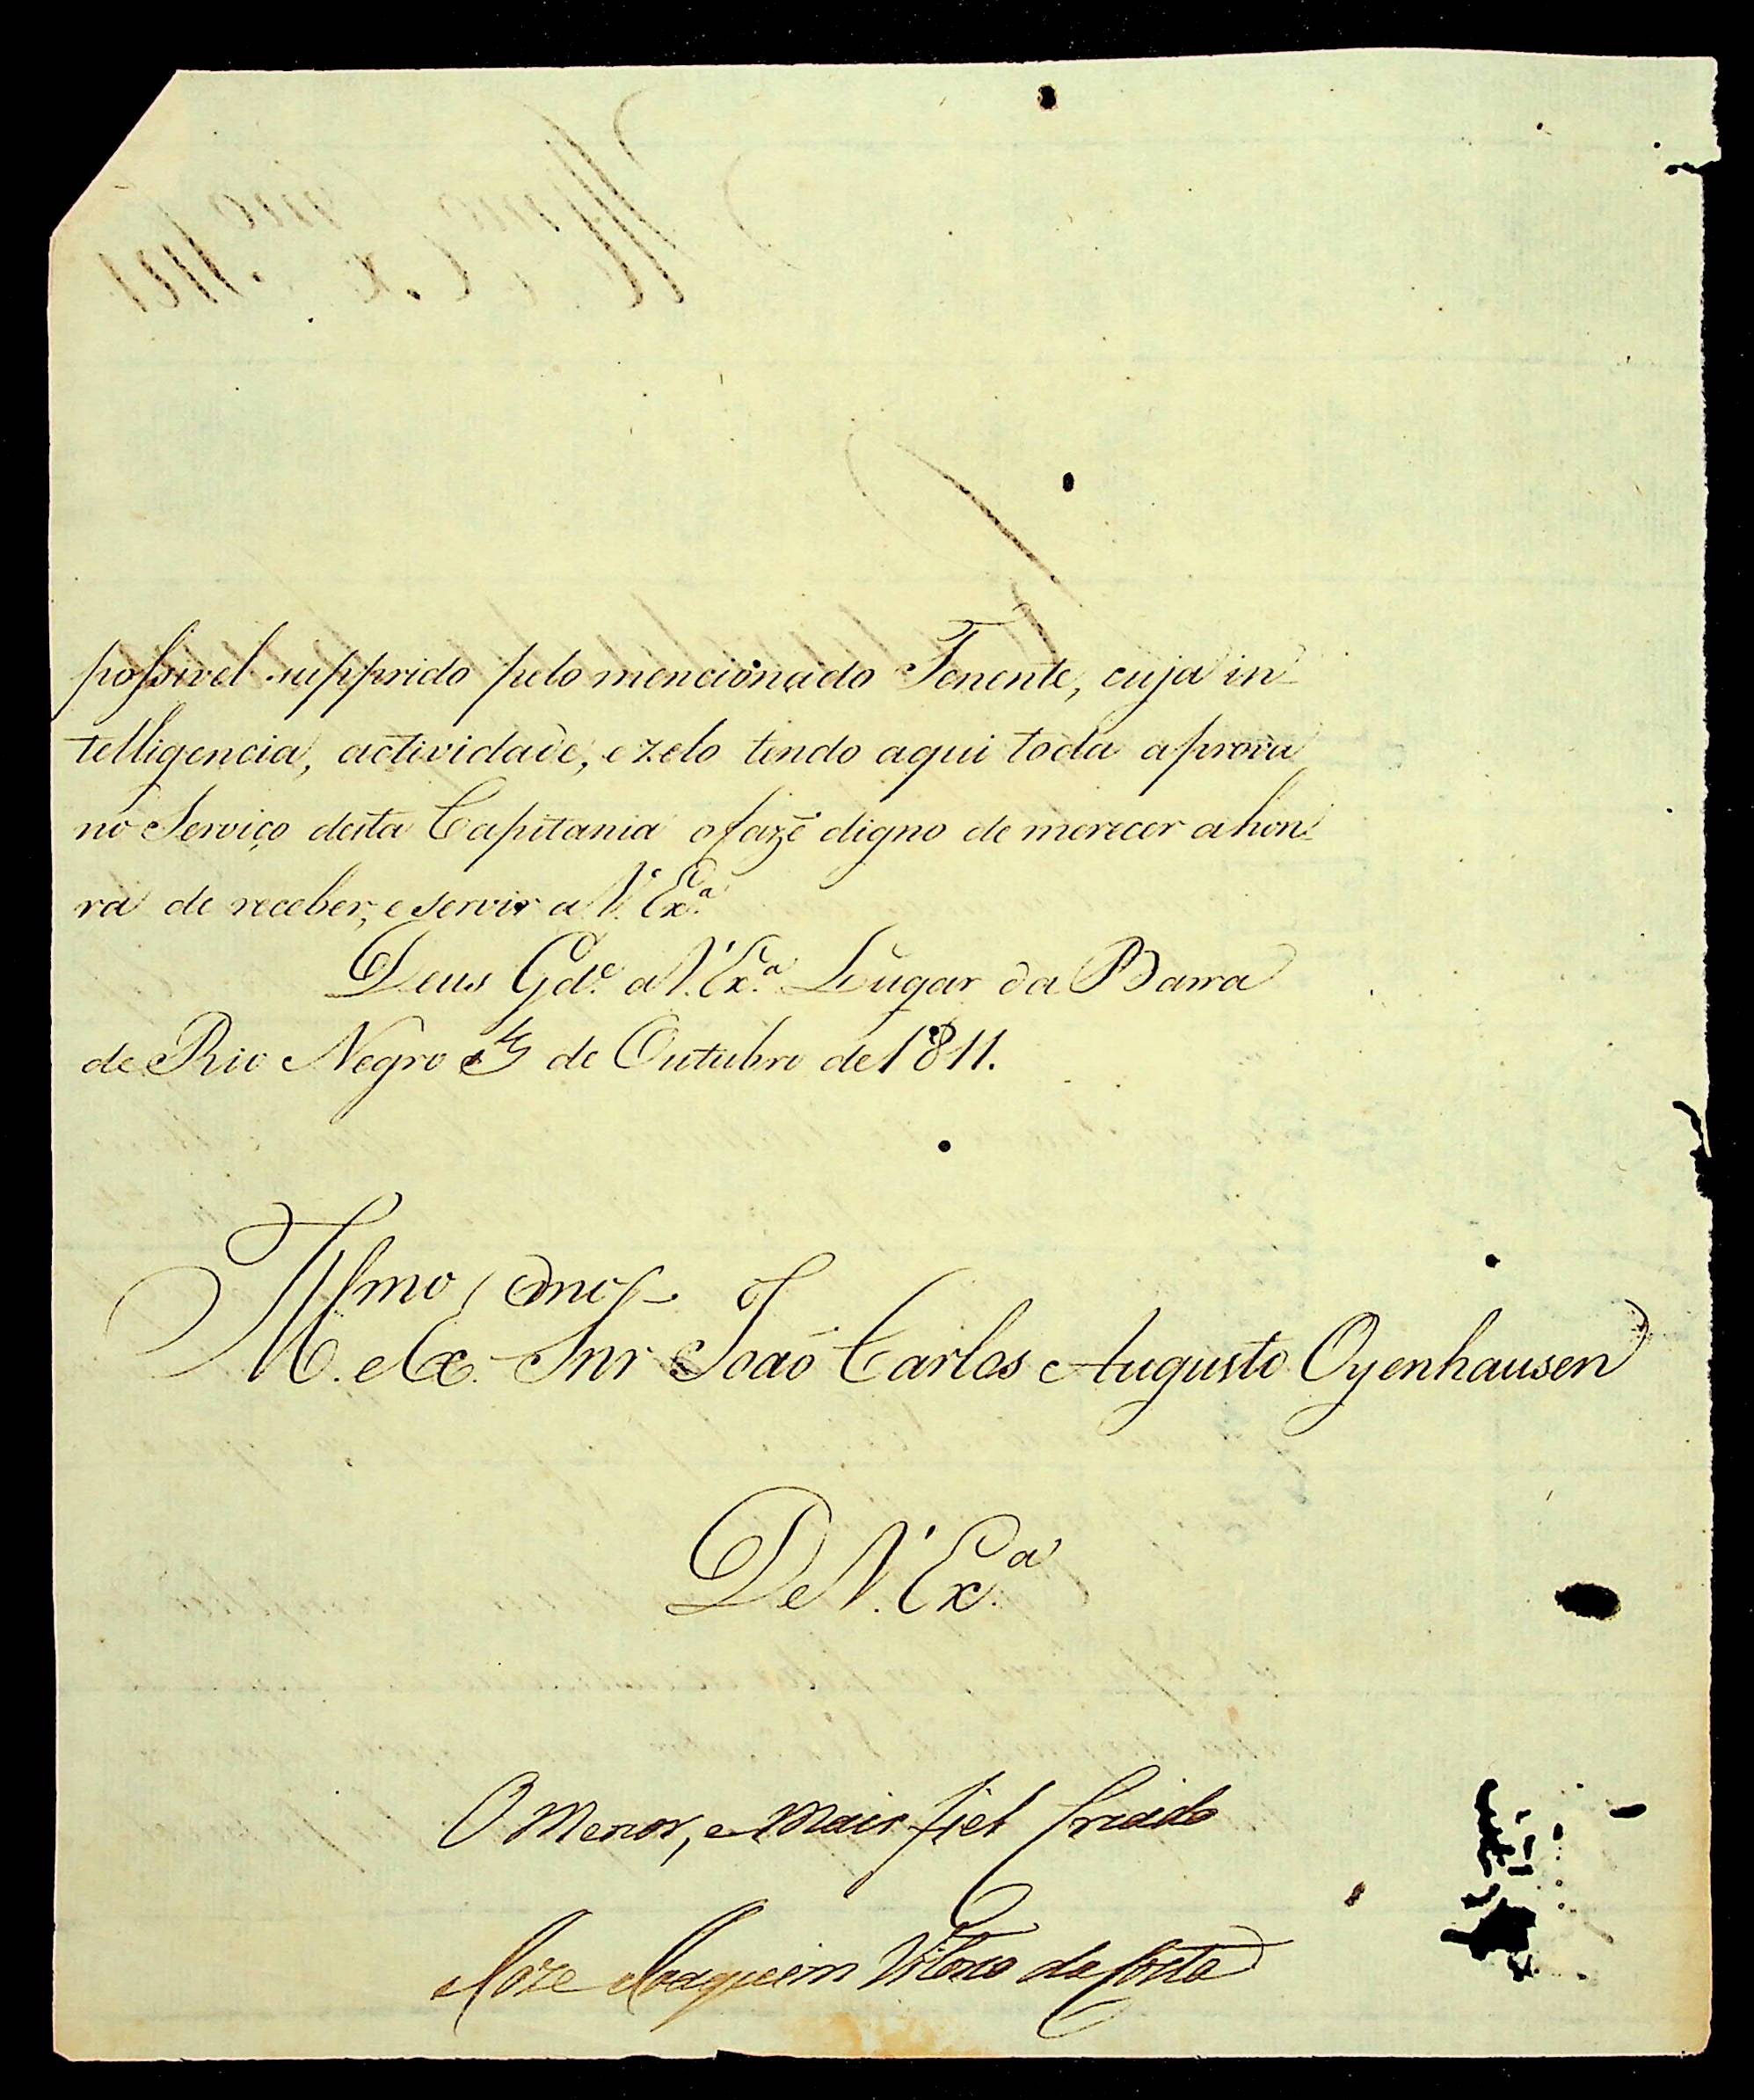 possivel supprido pelo mencionado Tenente, cuja in-
telligencia, actividade, e zelo tendo aqui toda a prova
no Serviço desta Capitania o faze digno de merecer a hon-
ra de receber, e servir a V. Exª
Deus Gde a V. Exª Lugar da Barra
de Rio Negro de Outubro de 1811.
Illmo e Exmo Snr João Carlos Augusto Oyenhausen
De V. Exª
O Menor, e Mais fiel Criado
Joze Joaquim Victorio da Costa